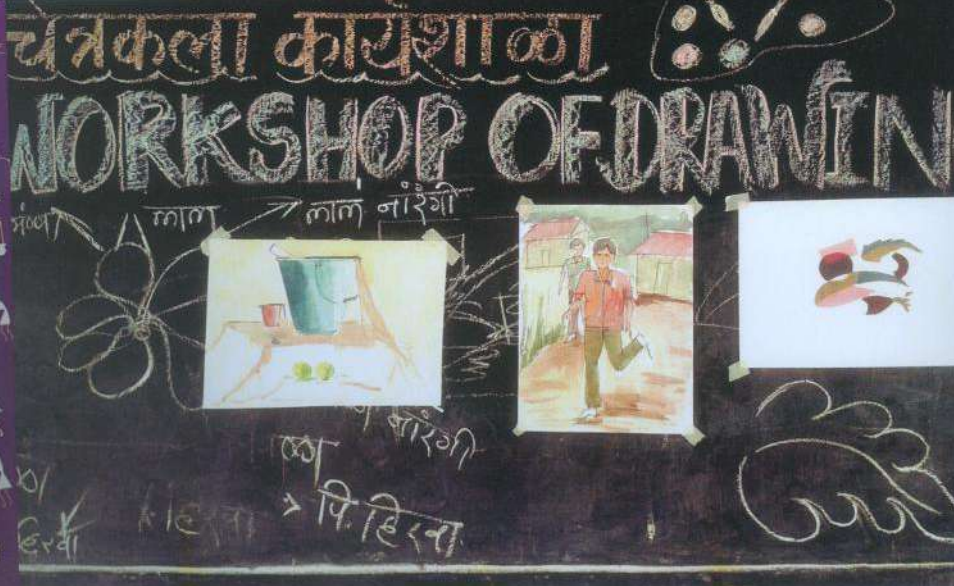 चित्रकला कार्यशाळा
WORKSHOP OF DRAWIN
लाल लाल नारंगी
नारंगी
पि. हिरवा